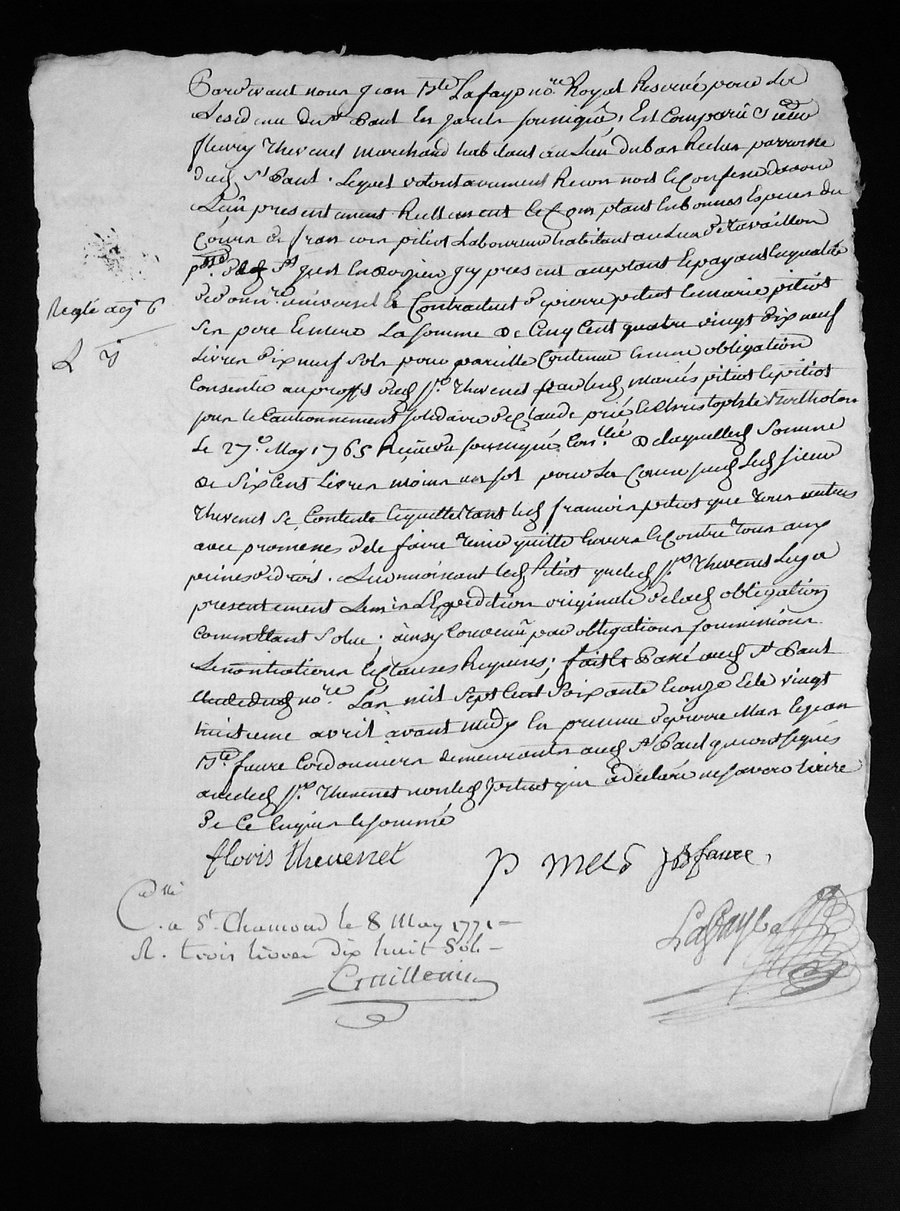 Pardevant nous Jean Bte Lafay no.re Royal Reservé pour La
Residence de St Paul En Jarest soussigné, Est Comparû Sieur
fleury Thevenet marchand habitant au Lieu du bas Rechin parroisse
dud St Paul. Lequel volontairement Reconnoit & Confesse avoir
presentement Reellement & Comptant En bonnes Especes du
Cours de francois pitiot Laboureur habitant au Lieu de
St Paul En Jarest icy present acceptant & payant En qualité
de donre universel & Contractuel de pierre pitiot & marie pitiot
Ses pere & mere La somme de Cinq Cent quatre vingt dix neuf
Livres dix neuf sols pour pareille Contenue En une obligation
Consentie au proffit dud Sr Thevenet par lesd mariés pitiot & pitiot
sous le Cautionnement solidaire de Claude prié & Christophle Bertholon
Le 27e May 1765 Reçüe du soussigné de laquelle somme
de Six Cent Livres moins un sol pour La Cause led Sieur
Thevenet Se Contente & quitte tant led francois pitiot que tous autres
avec promesses de le faire tenir quitte Envers & Contre tous aux
peines de droit. Reconnoissant led Pitiot que led Sr Thevenet Luy a
presentement Remis L'Expedition originale de lad obligation
Comme Etant Solue; ainsy Convenû par obligations soumissions
Renontiations & Clauses Requises; fait & Passé aud St Paul
nore L'an mil Sept Cent Soixante & onze & le vingt
huitieme avril avant midy En presence de pierre Mas & Jean
Bte faure Cordonniers demeurants aud St Paul qui ont signés
avec led Sr Thevenet non led pitiot qui a declaré ne savoir Ecrire
de Ce Enquis & sommé
Reglé 6
L
floris thevenet
P Mas JB faure
C. a St. Chamond le 8 May 1771
R. trois livres dix huit Sols
Lafay